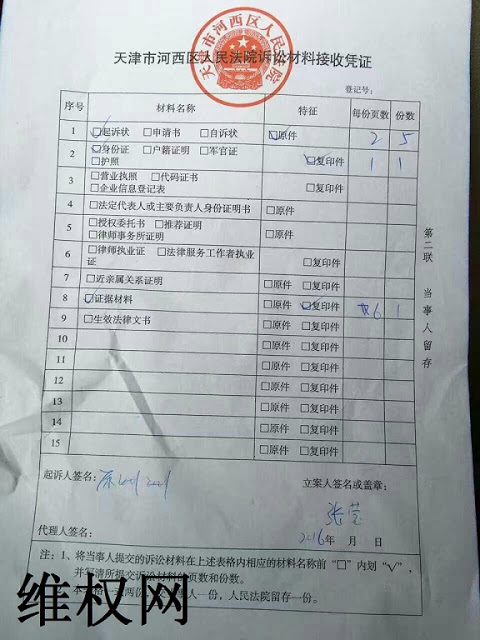 天津市河西区人民法院
天津市河西区人民法院诉讼材料接收凭证
登记号：
序号 材料名称 特征 每份页数 份数
1 ☑起诉状 □申请书 □自诉状 ☑原件 2 5
2 ☑身份证 □户籍证明 □军官证 □护照 ☑复印件 1 1
3 □营业执照 □代码证书
□企业信息登记表 □复印件
4 □法定代表人或主要负责人身份证明书 □原件
5 □授权委托书 □推荐证明
□律师事务所证明 □原件
6 □律师执业证 □法律服务工作者执业证 □复印件
7 □近亲属关系证明 □原件 □复印件
8 ☑证据材料 □原件 ☑复印件 6 1
9 □生效法律文书 □原件 □复印件
10 □原件 □复印件
11 □原件 □复印件
12 □原件 □复印件
13 □原件 □复印件
14 □原件 □复印件
15 □原件 □复印件
第二联 当事人留存
起诉人签名：
立案人签名或盖章：
张莹
代理人签名：
2016年 月 日
注：1、将当事人提交的诉讼材料在上述表格内相应的材料名称前“□”内划“√”，
并写清所提交诉讼材料的页数和份数。
人一份，人民法院留存一份。
维权网